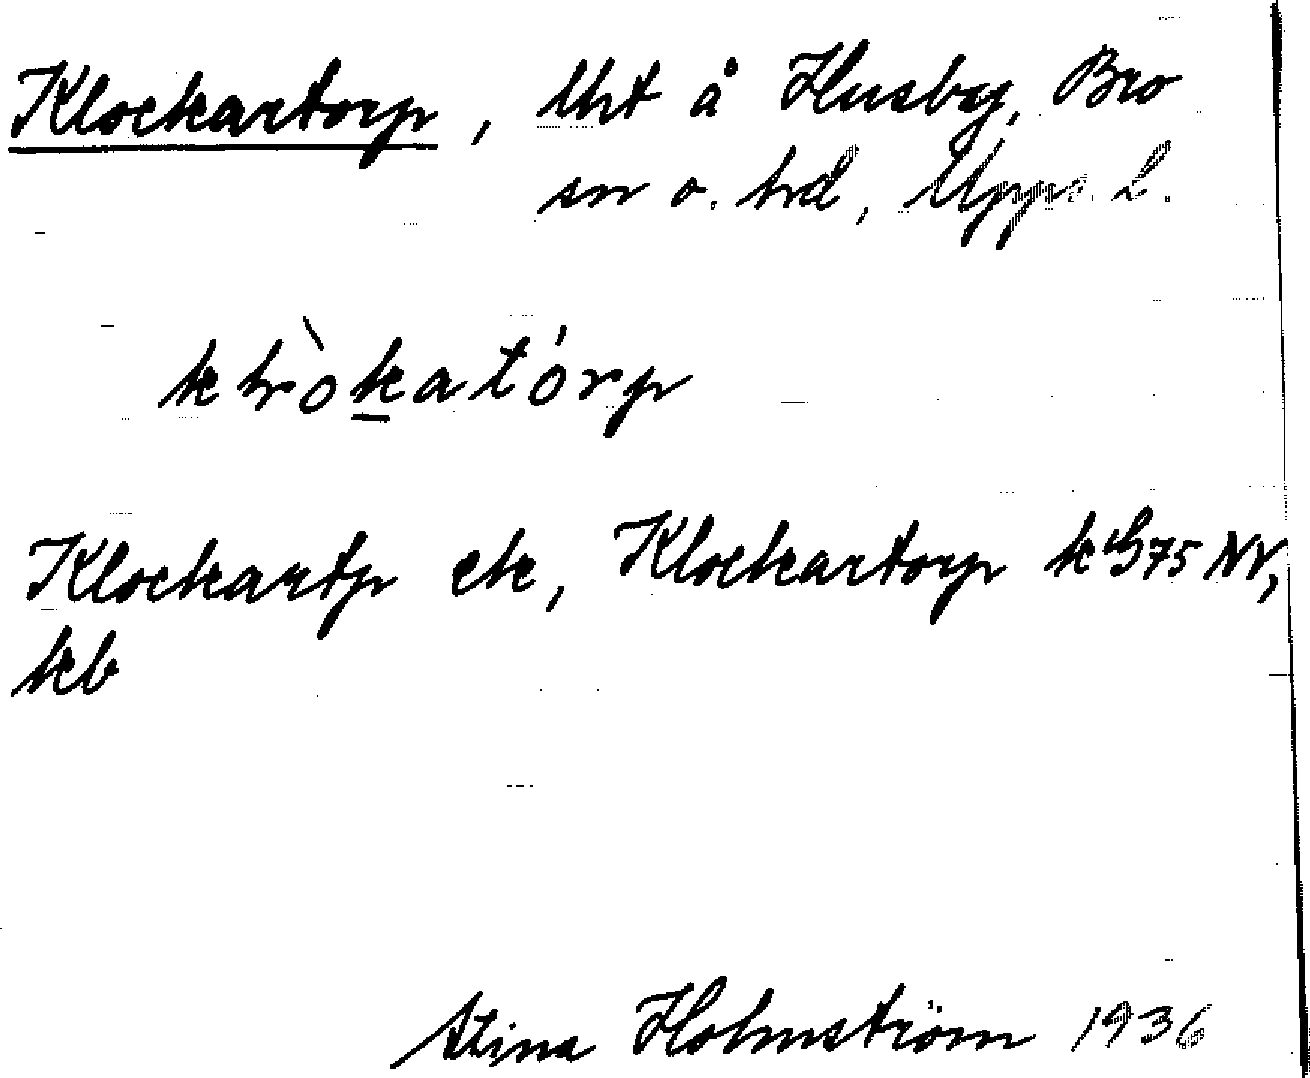 Klockartorp, lht å Husby, Bro
sn o. hd, Upps. l.
kl̥òkatórp
Klockartp ek, Klockartorp k NV,
kb
Stina Holmström 1936